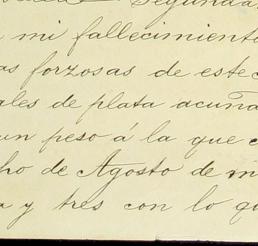 Segunda
mi fallecimiento
as forzosas de este
ales de plata acuña
un peso á la que
ho de Agosto de m
a y tres con lo qu